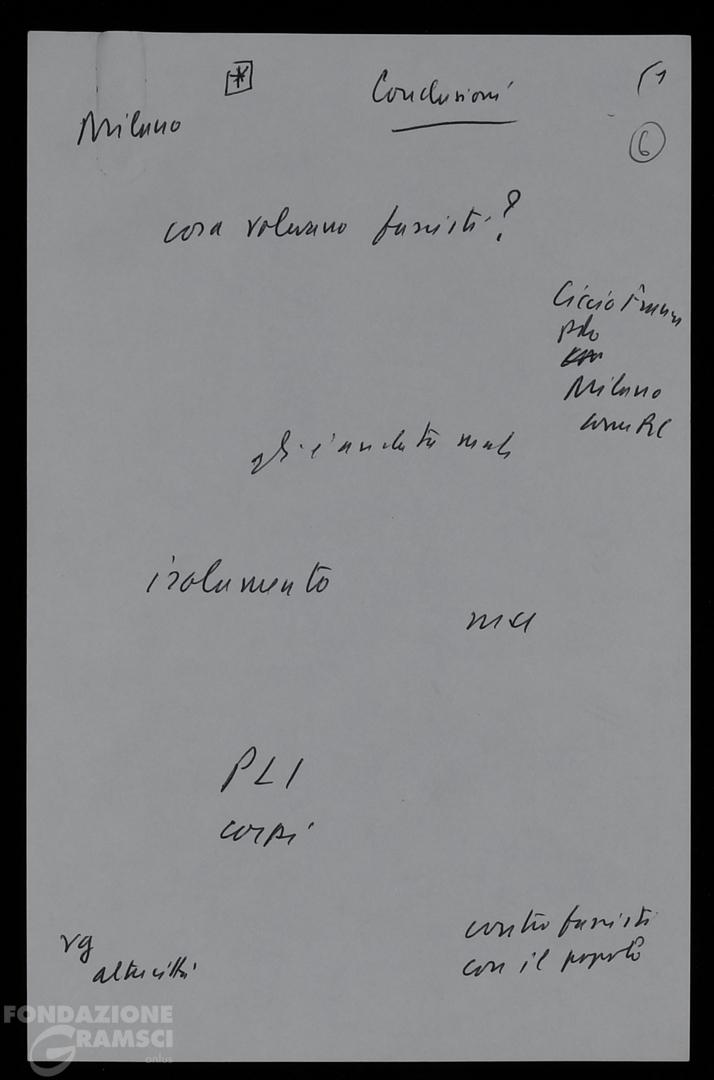 * Conclusioni (1
Milano
6
cosa volevano fascisti?
Ciccio Franco
Milano
come RC
gli è andata male
isolamento
PLI
corpi
vg
altre città
contro fascisti
con il popolo
FONDAZIONE
GRAMSCI
onlus